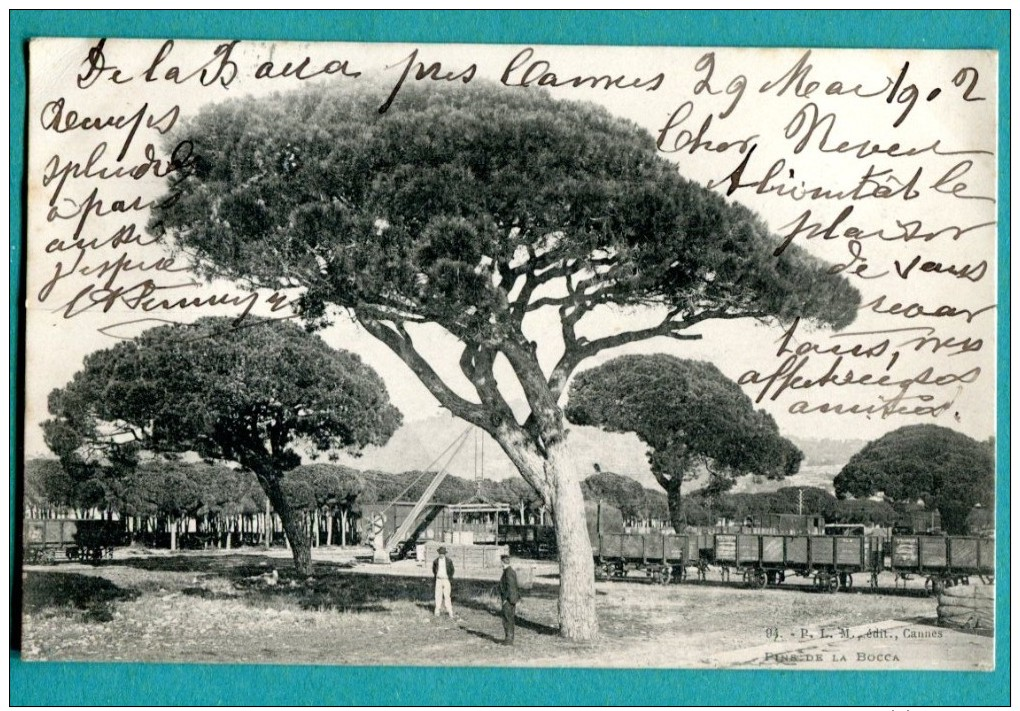 De la Bocca près Cannes 29 Mai 1902
Cher Neveu
A bientôt le
plaisir
de vous
revoir
Tous, nos
affectueuses
amitiés.
Temps
splendide
à part
aussi
j'espère
94. - P. L. M., édit., Cannes
PINS DE LA BOCCA